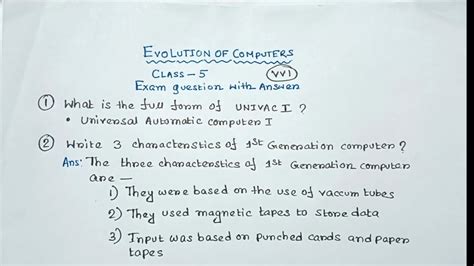 EVOLUTION OF COMPUTERS
CLASS-5 VVI
Exam question with Answer
1 What is the full form of UNIVAC I ?
• Universal Automatic computer I
2 Write 3 characteristics of 1st Generation computer?
Ans: The three characteristics of 1st Generation computer
are —
1) They were based on the use of vaccum tubes
2) They used magnetic tapes to store data
3) Input was based on punched cards and paper
tapes